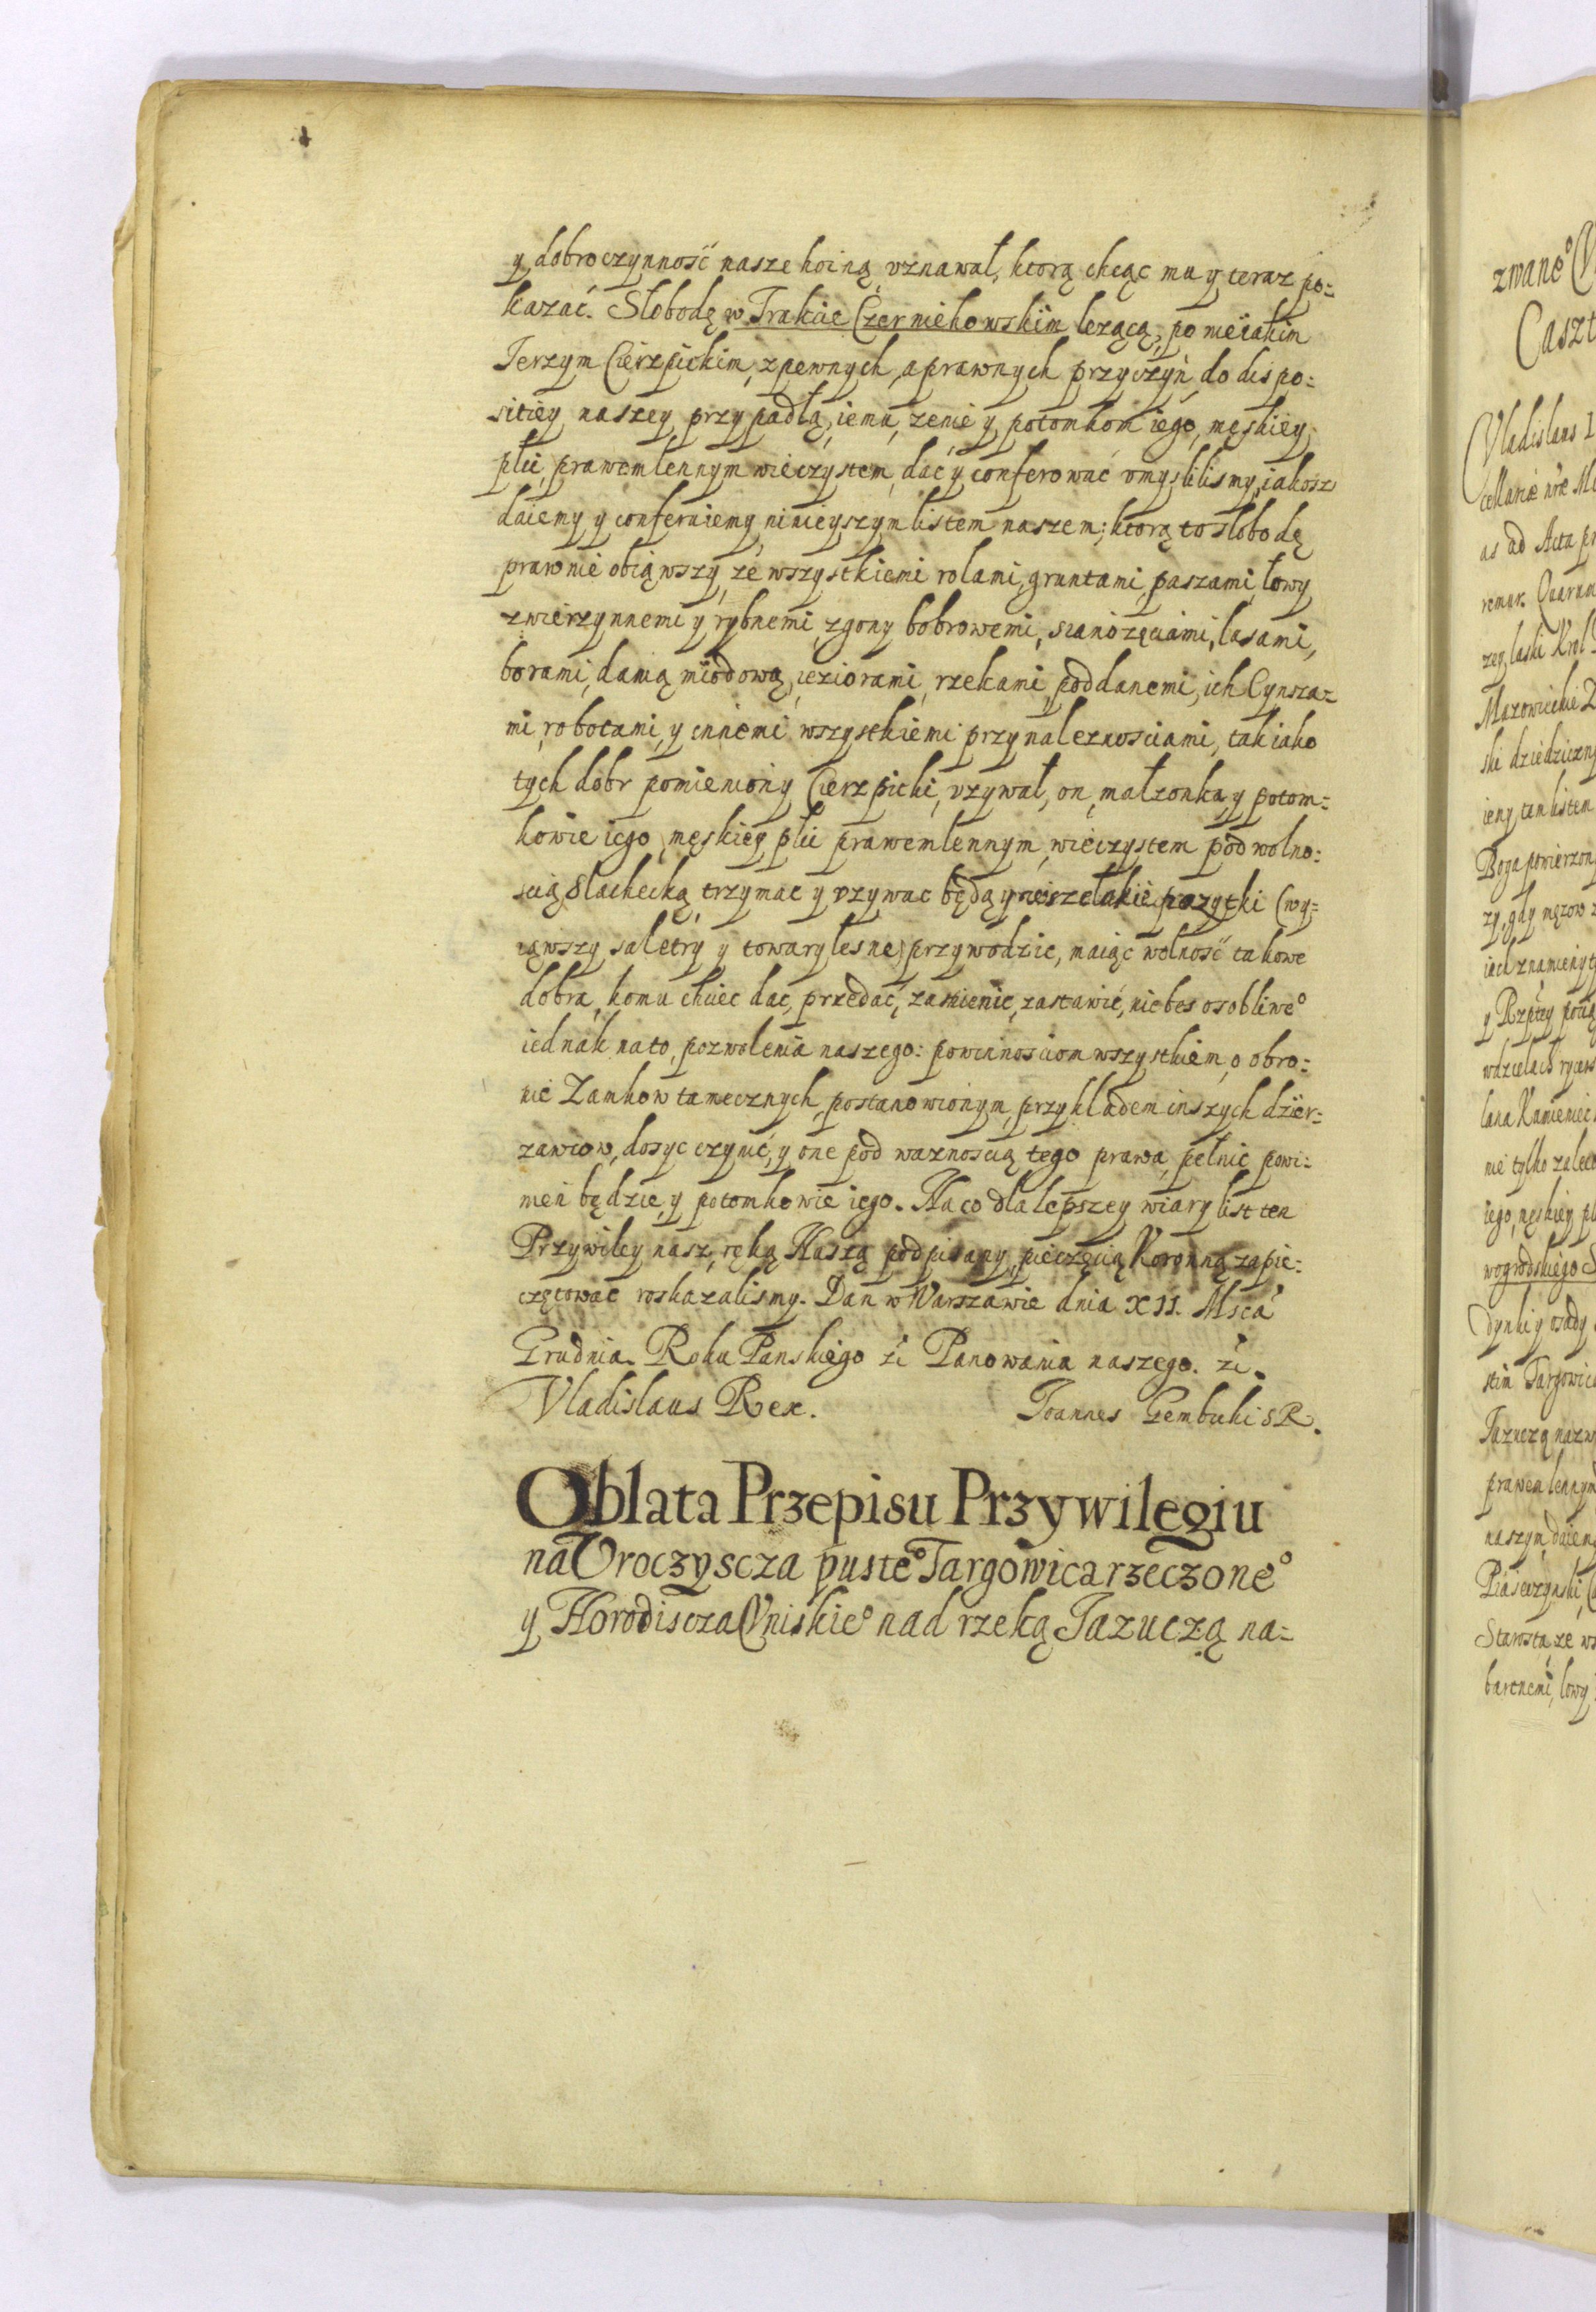 y dobroczynność nasze hoiną vznawał, ktorą chcąc mu y teraz po=
kazać. Słobodę w Trakcie Czerniehowskim lezącą, po nieiakim
Jerzym Cierzpickim, z pewnych, a prawnych przyczyn, do dispo=
sitiey naszey przypadłą, iemu, zenie y potomkom iego, męskiey
płci, prawem lennym wieczystem, dać y conferować vmyslilismy, iakosz
daiemy y conferuiemy, ninieyszym listem naszem; ktorą to słobodę
prawnie obiąwszy, ze wszystkiemi rolami, gruntami, paszami, łowy
zwierzynnemi y rybnemi, zgony bobrowemi, sianozęciami, lasami,
borami, danią miodową, ieziorami, rzekami, poddanemi, ich Cynsza=
mi, robotami, y innemi wszystkiemi przynaleznosciami, tak iako
tych dobr pomieniony Cierzpicki, vzywał, on, małzonka y potom=
kowie iego, męskiey płci prawem lennym, wieczystem pod wolno=
scią Slachecką, trzymac y vzywac będą y wszelakie pozytki (wy=
iąwszy saletry y towary lesne) przywodzic, maiąc wolność takowe
dobra, komu chciec dac, przedać, zamienic, zastawić, nie bes osobliwe°
iednak na to, pozwolenia naszego: powinnosciom wszystkiem, o obro=
nie Zamkow tamecznych, postanowionym, przykładem inszych dzier=
zawcow, dosyc czynić, y one pod waznoscią tego prawa, pełnic powi=
nien będzie, y potomkowie iego. Na co dla lepszey wiary list ten
Przywiley nasz, ręką Naszą podpisany, pieczęcią Koronną zapie=
czętowac roskazalismy. Dan w Warszawie dnia XII. Msca
Grudnia. Roku Panskiego źi Panowania naszego. źi.
Vladislaus Rex. Joannes Gembicki SR.
Oblata Przepisu Przywilegiu
na Vroczyscza puste° Targowica rzeczone°
y Horodiscza Vniskie° nad rzeką Jazuczą na=
zwane°
Caszt
Vladislaus
as ad Acta
Mazowieckie
ski dziedziczny
ieny tem listem
Boga powierzon
y Rzptey
lana Kamieniec
nie tylko zalec
iego, męskiey pł
wogrodskiego S
dynki y osady
Targowica
Jazuczą nazw
prawem lennym
naszym, daiemy
Piaseczynski
Starosta, ze ws
bartnemi, łowy